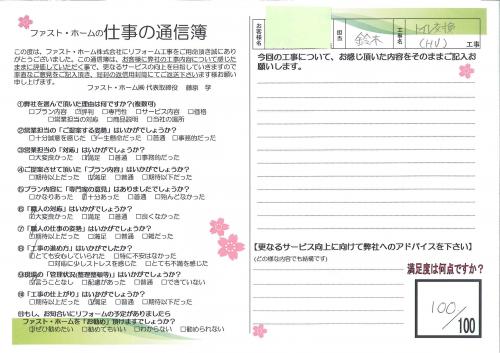 ファスト・ホームの仕事の通信簿
この度は、ファスト・ホーム株式会社にリフォーム工事をご用命頂き誠にあり
がとうございました。この通信簿は、お客様に弊社の工事内容について感じた
ままに評価していただく事で、更なるサービスの向上を目指していきますので
率直なご意見をご記入頂き、同封の返信用封筒にてご送付下さいます様お願い
申し上げます。
ファスト・ホーム㈱ 代表取締役 藤原 学
①弊社を選んで頂いた理由は何ですか？(複数可)
□プラン内容 □評判 □専門性 □サービス内容 □価格
□営業担当の対応 □商品説明 □当社の場所
②営業担当の「ご提案する姿勢」はいかがでしょうか？
□十分誠意を感じた □一生懸命だった □普通 □事務的だった
③営業担当の「対応」はいかがでしょうか？
□大変良かった □満足 □普通 □事務的だった
④ご提案させて頂いた「プラン内容」はいかがでしょうか？
□期待以上だった □満足 □普通 □期待以下だった
⑤プラン内容に「専門家の意見」はありましたでしょうか？
□かなりあった □十分あった □普通 □殆んどなかった
⑥「職人の対応」はいかがでしょうか？
□大変良かった □満足 □普通 □良くなかった
⑦「職人の仕事の姿勢」はいかがでしょうか？
□期待以上だった □満足 □普通 □雑だった
⑧「工事の進め方」はいかがでしたか？
□とても安心していられた □特に不安はなかった
□対応に少しストレスを感じた □とても不満を感じた
⑨現場の「管理状況(整理整頓等)」はいかがでしょうか？
□言うことなし □配慮があった □普通 □できていない
⑩「工事の仕上がり」はいかがでしょうか？
□期待以上だった □満足 □普通 □期待以下だった
⑪もし、お知合いにリフォームの予定がありましたら
ファスト・ホームを「お勧め」頂けますでしょうか？
□ぜひ勧めたい □勧めてもいい □わからない □勧められない
お客様名
担当 鈴木
工事名 トイレ交換 (HU) 工事
今回の工事について、お感じ頂いた内容をそのままご記入お
願いします。
【更なるサービス向上に向けて弊社へのアドバイスを下さい】
(どの様な内容でも結構です)
満足度は何点ですか？
100/100